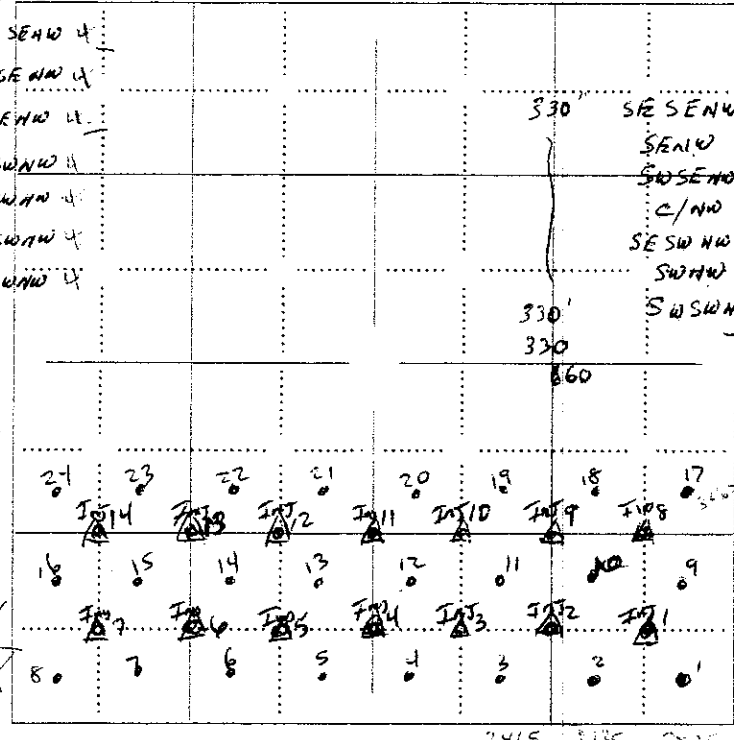 SENW 4
SE NW 4
ENW 4
SWNW 4
WNW 4
SWNW 4
WNW 4
330' SE SENW
SENW
SWSENW
C/NW
SE SW NW
SWNW
330' SWSWN
330
660
24 23 22 21 20 19 18 17
Inj 14 Inj 13 Inj 12 Inj 11 Inj 10 Inj 9 Inj 8
16 15 14 13 12 11 10 9
Inj 7 Inj 6 Inj 5 Inj 4 Inj 3 Inj 2 Inj 1
8 7 6 5 4 3 2 1